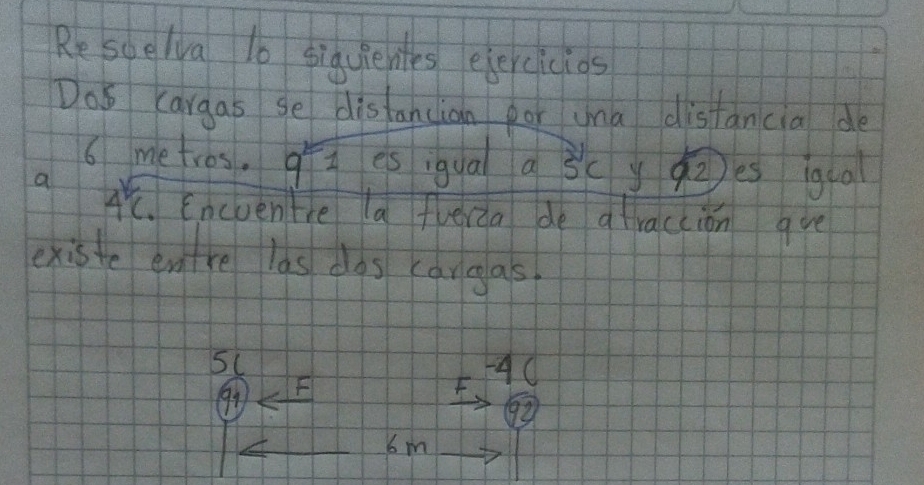 Resuelva lo siguientes ejercicios
Dos cargas se distancian por una distancia de
6 metros. q1 es igual a 5c y q2 es igual
a 4c. Encuentre la fuerza de atracción que
existe entre las dos cargas.
5C -4C
q1 F F q2
6m